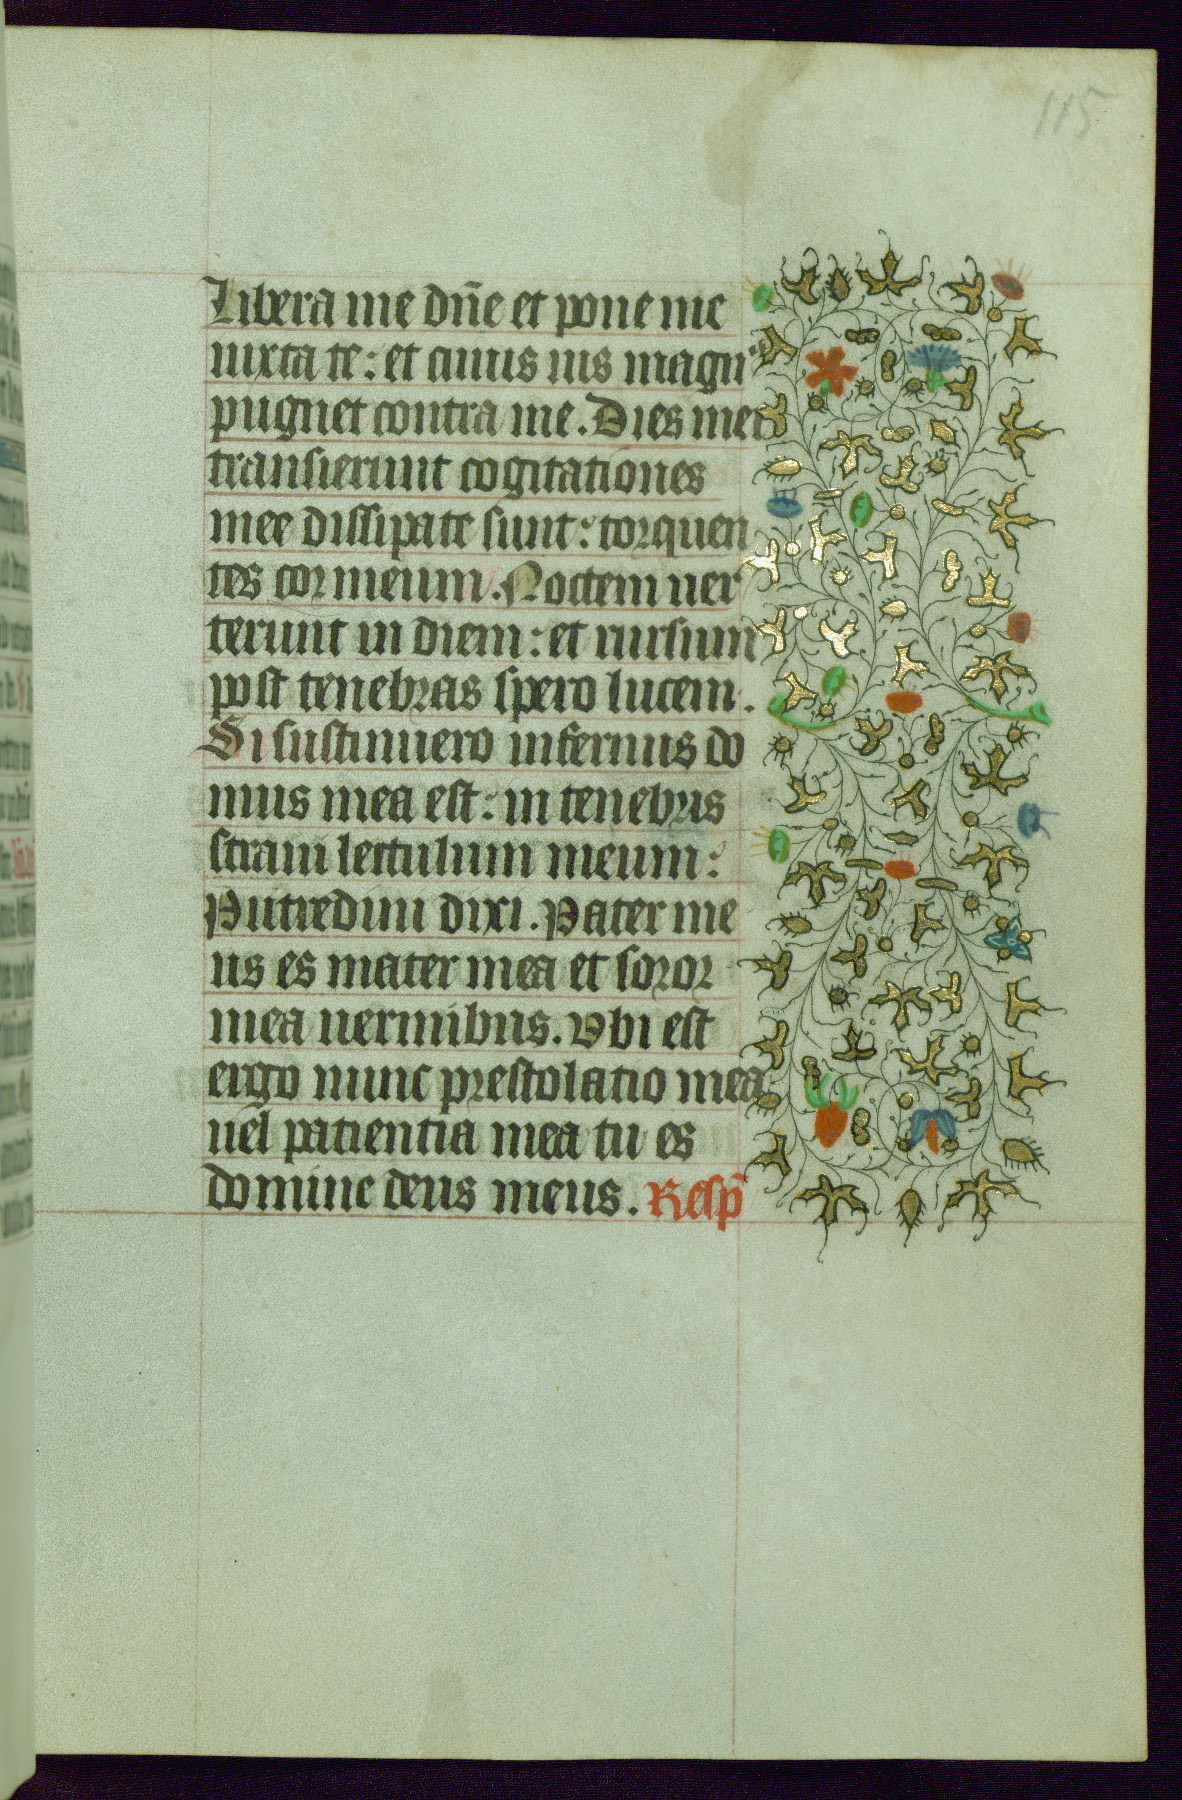 115
Libera me dñe et pone me
iuxta te: et cuius uis manu
pugnet contra me. Dies mei
transierunt cogitationes
mee dissipate sunt: torquen
tes cor meum. Noctem uer
terunt in diem: et rursum
post tenebras spero lucem.
Si sustinuero infernus do
mus mea est: in tenebris
straui lectulum meum:
Putredini dixi. Pater me
us es mater mea et soror
mea uermibus. Vbi est
ergo nunc prestolatio mea
uel patientia mea tu es
domine deus meus. Resp̄